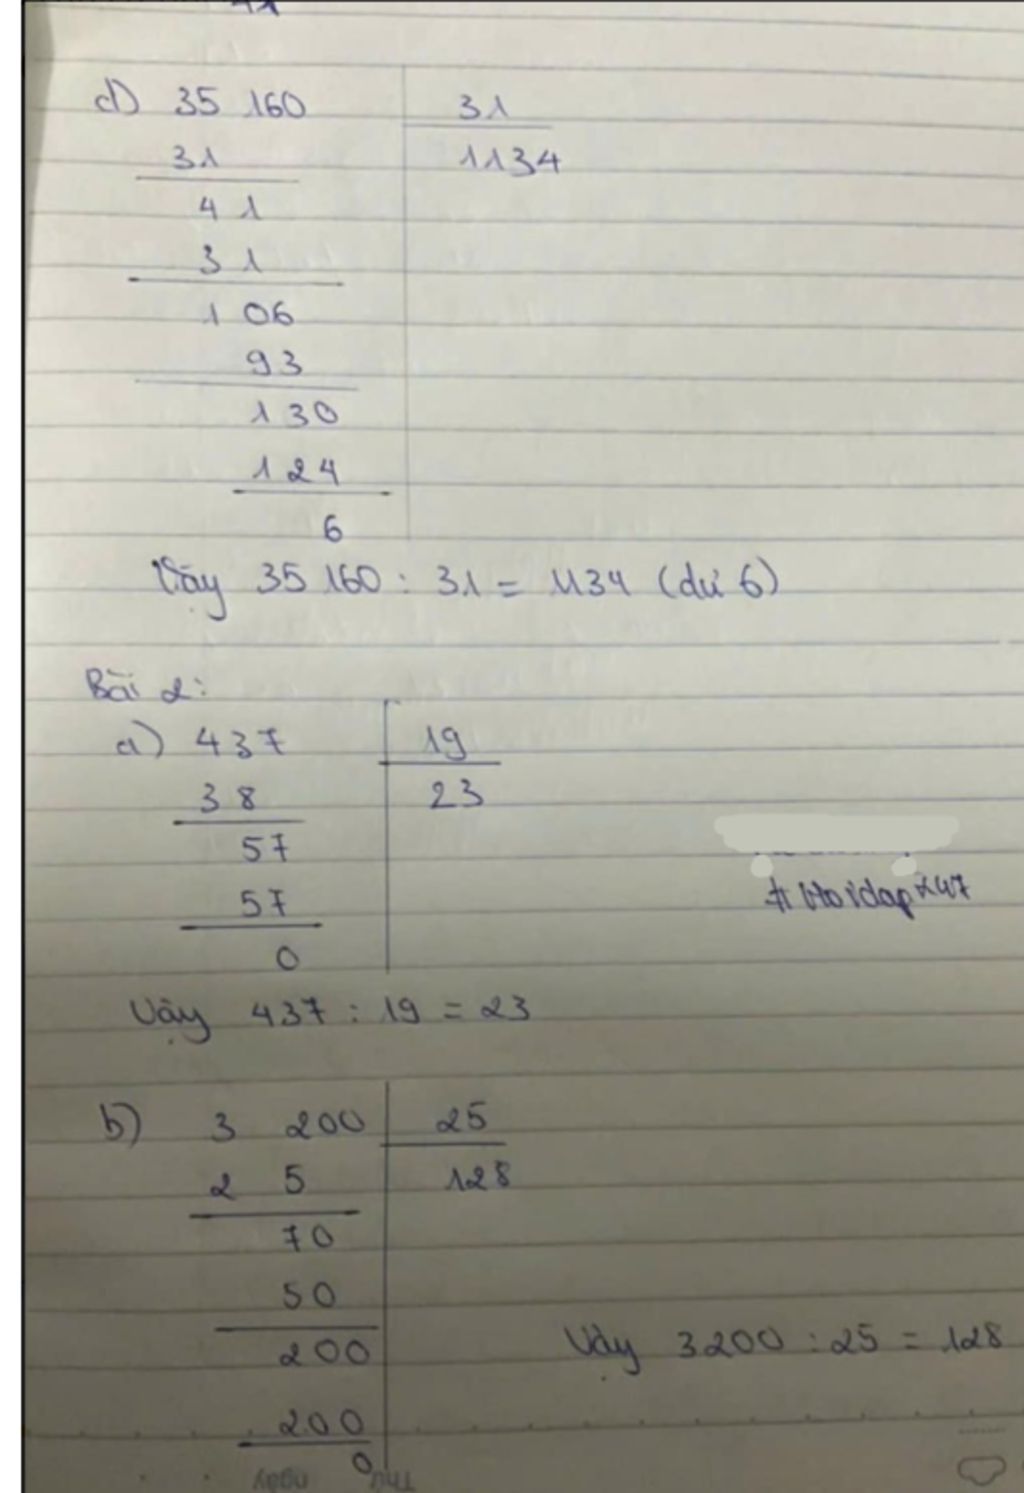 d) 35 160 31
31 1134
41
31
106
93
130
124
6
Vậy 35 160 : 31 = 1134 (dư 6)
Bài 2:
a) 437 19
38 23
57
57
0
#Hoidap247
Vậy 437 : 19 = 23
b) 3 200 25
2 5 128
70
50
200
Vậy 3200 : 25 = 128
200
0